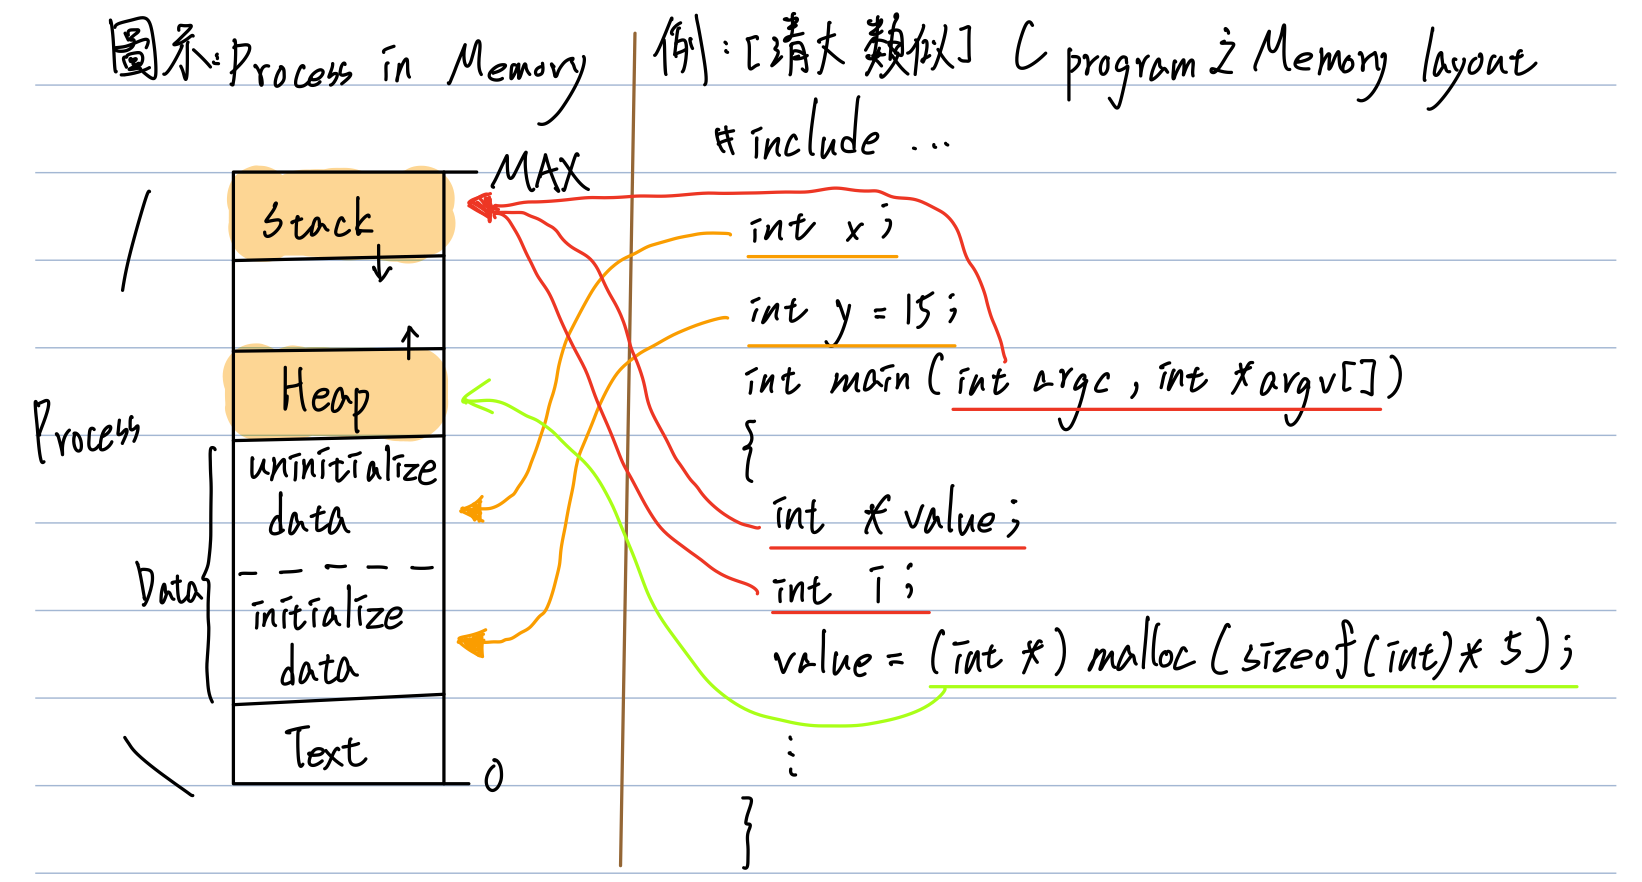 圖示:Process in Memory
MAX
Stack
Heap
Process
uninitialize
data
Data
initialize
data
Text
0
例:[清大類似] C program 之 Memory layout
#include ...
int x;
int y = 15;
int main(int argc, int *argv[])
{
int *value;
int i;
value = (int *) malloc(sizeof(int)* 5);
⋮
}